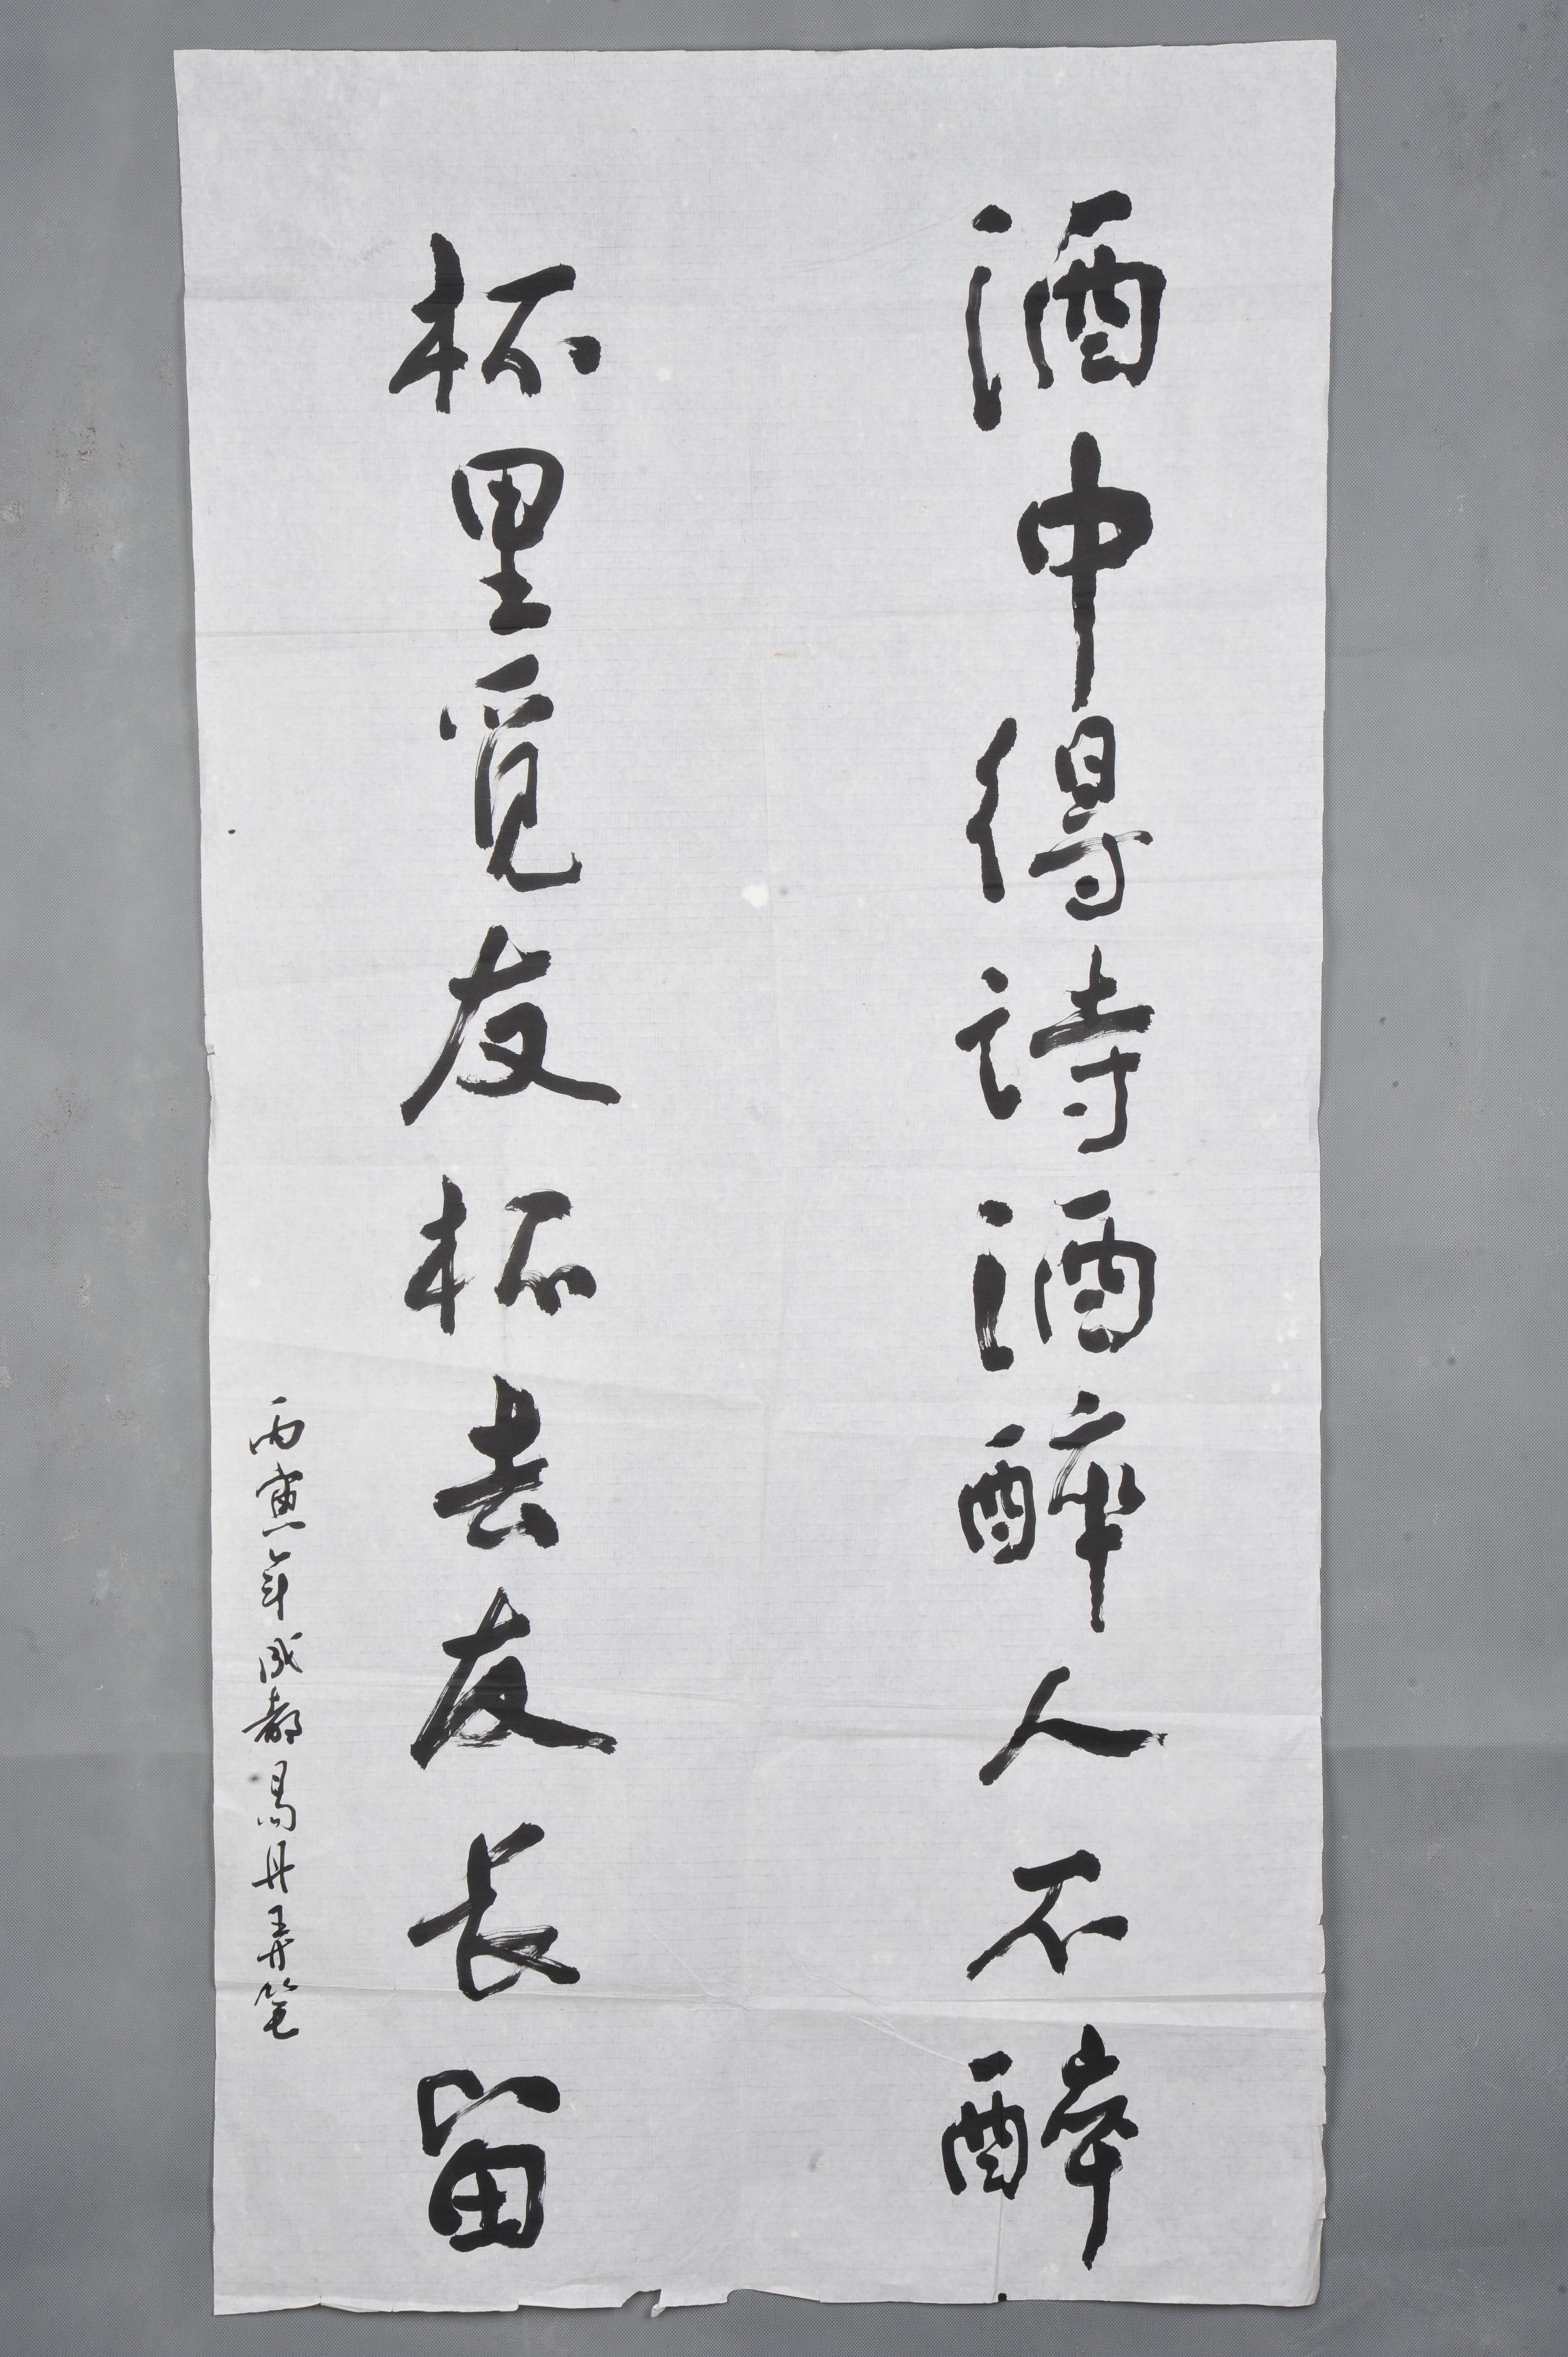 酒中得诗酒醉人不醉
杯里觅友杯去友长留
丙寅年成都易丹弄笔